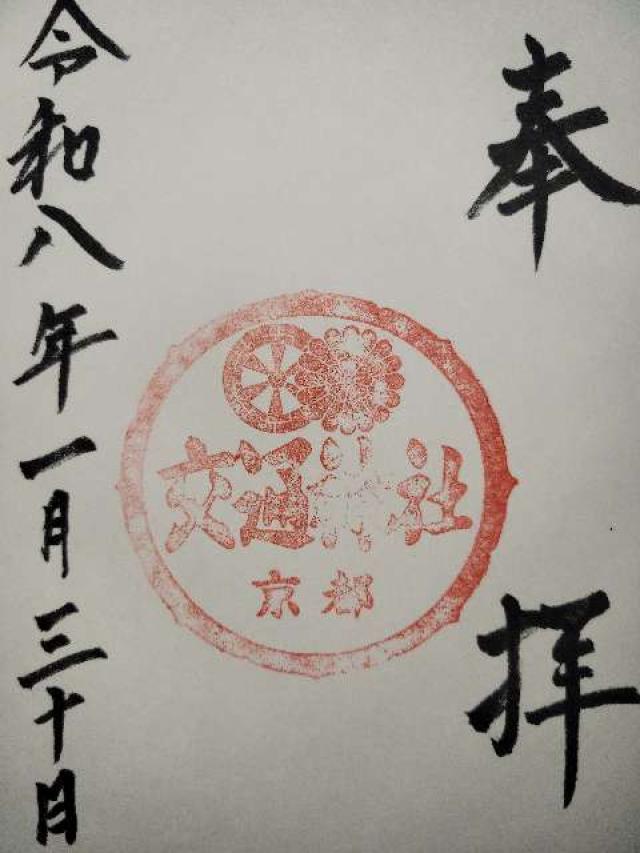 奉拝
交通神社
京都
令和八年一月三十日